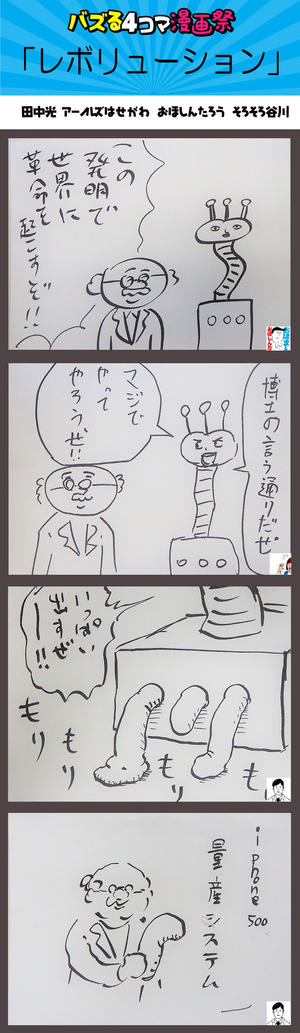 バズる4コマ漫画祭
「レボリューション」
田中光 アールズはせがわ おほしんたろう そろそろ谷川
この
発明で
世界に
革命を
起こすぞ!!
博士の言う通りだぜ
マジで
やって
やろうぜ!!
いっぱい
出すぜ
ーー!!
もり
もり
もり
iphone
500
量産システム